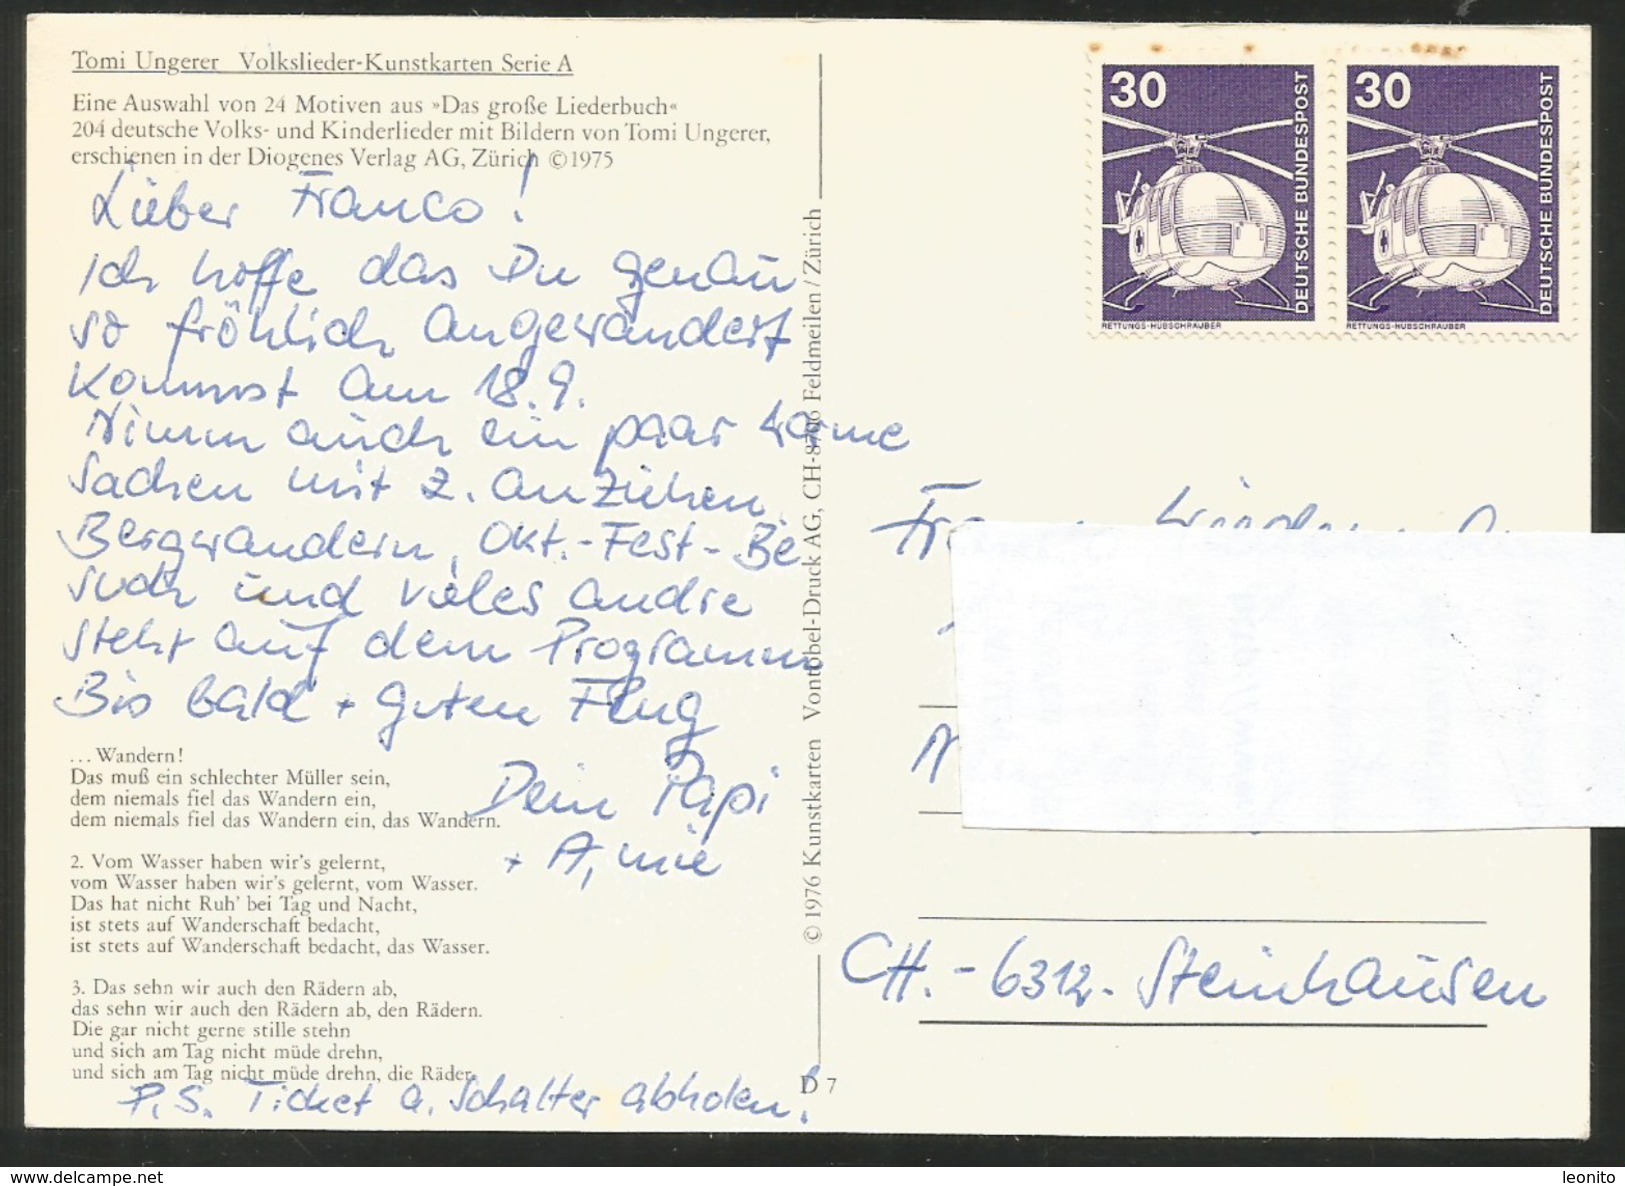 Tomi Ungerer Volkslieder-Kunstkarten Serie A
Eine Auswahl von 24 Motiven aus »Das große Liederbuch«
204 deutsche Volks- und Kinderlieder mit Bildern von Tomi Ungerer,
erschienen in der Diogenes Verlag AG, Zürich © 1975
Lieber Franco!
Ich hoffe das Du genau
so fröhlich angewandert
kommst am 18.9.
Nimm auch ein paar warme
Sachen mit z. anziehen
Bergwandern, Okt.-Fest-Be
such und vieles andre
steht auf dem Programm
Bis bald + guten Flug
Dein Papi
+
... Wandern!
Das muß ein schlechter Müller sein,
dem niemals fiel das Wandern ein,
dem niemals fiel das Wandern ein, das Wandern.
2. Vom Wasser haben wir's gelernt,
vom Wasser haben wir's gelernt, vom Wasser.
Das hat nicht Ruh' bei Tag und Nacht,
ist stets auf Wanderschaft bedacht,
ist stets auf Wanderschaft bedacht, das Wasser.
3. Das sehn wir auch den Rädern ab,
das sehn wir auch den Rädern ab, den Rädern.
Die gar nicht gerne stille stehn
und sich am Tag nicht müde drehn,
und sich am Tag nicht müde drehn, die Räder.
P.S. Ticket a. Schalter abholen!
D 7
© 1976 Kunstkarten Vontobel-Druck AG, CH-8706 Feldmeilen/Zürich
30
DEUTSCHE BUNDESPOST
RETTUNGS-HUBSCHRAUBER
30
DEUTSCHE BUNDESPOST
RETTUNGS-HUBSCHRAUBER
CH.-6312. Steinhausen
leonito